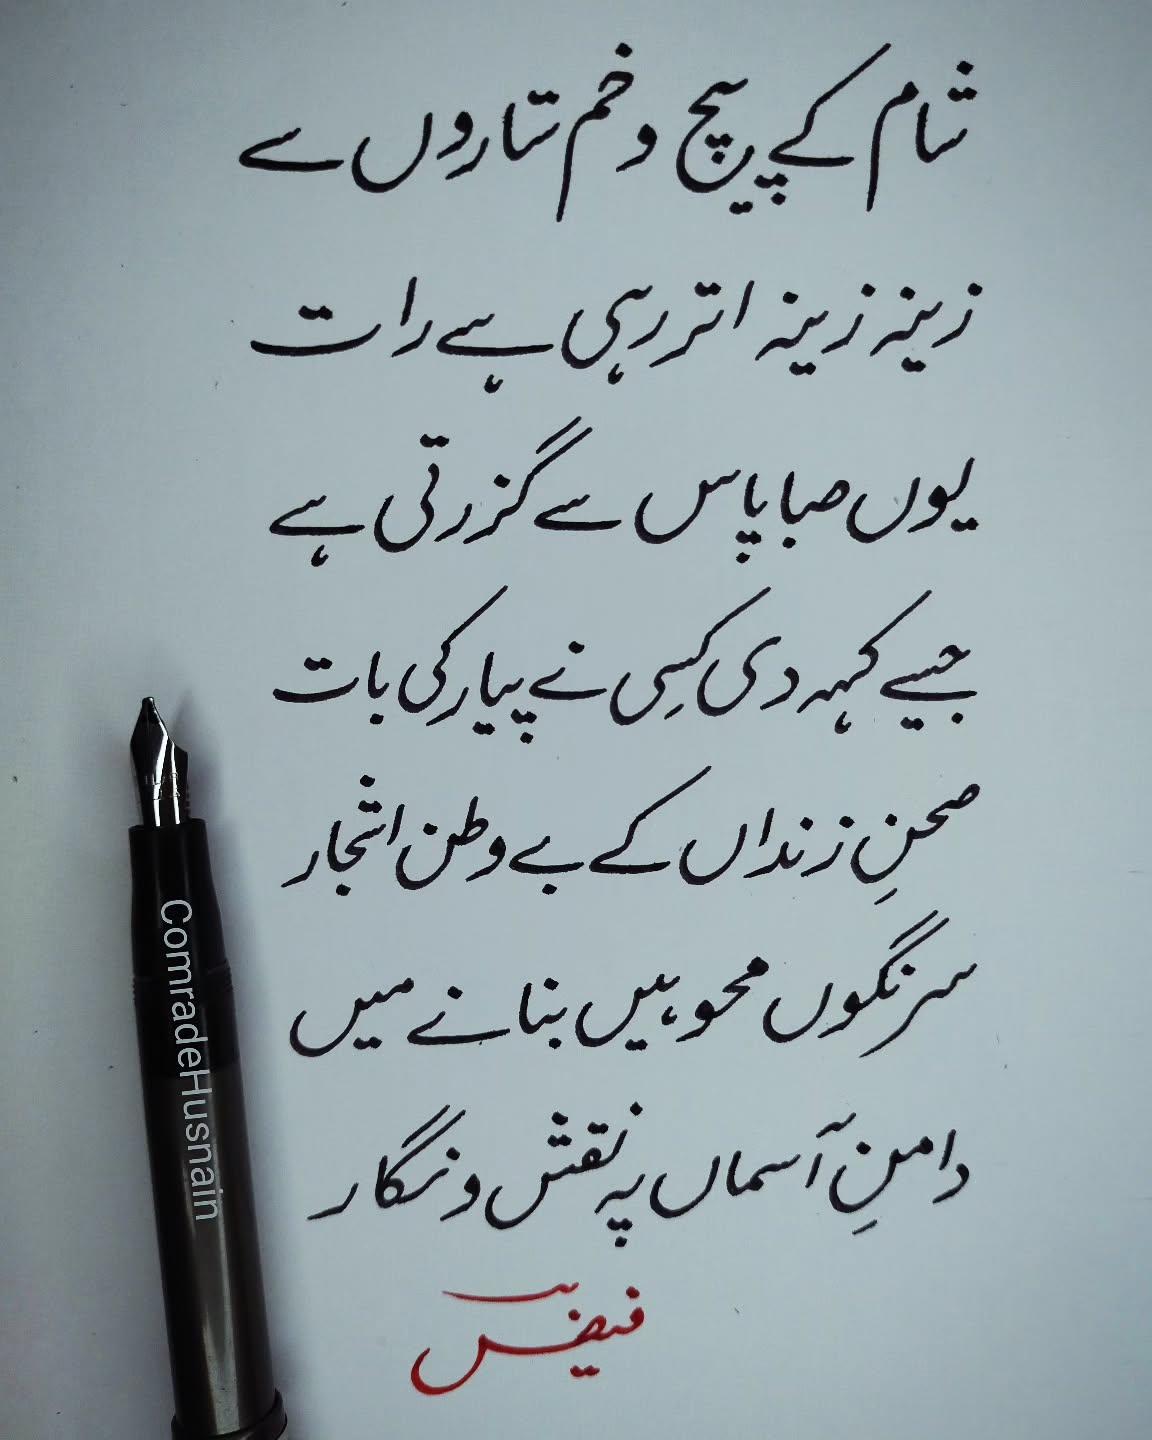 شام کے پیچ و خم ستاروں سے
زینہ زینہ اتر رہی ہے رات
یوں صبا پاس سے گزرتی ہے
جیسے کہہ دی کسی نے پیار کی بات
صحنِ زنداں کے بے وطن اشجار
سرنگوں محو ہیں بنانے میں
دامنِ آسماں پہ نقش و نگار
فیضؔ
ComradeHusnain